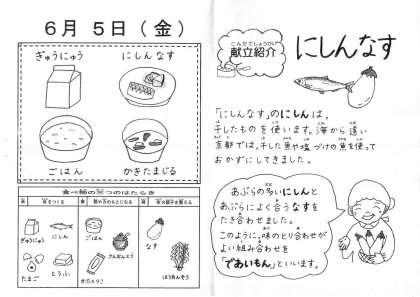 6月 5日(金)
ぎゅうにゅう
にしんなす
ごはん
かきたまじる
食べ物の三つのはたらき
赤 体をつくる
黄 熱や力のもとになる
緑 体の調子を整える
ぎゅうにゅう
にしん
たまご
とうふ
ごはん
さんおんとう
かたくりこ
なす
ほうれんそう
こんだてしょうかい
献立紹介
にしんなす
「にしんなす」のにしんは、
干したものを使います。海から遠い
京都では、干した魚や塩づけの魚を使って
おかずにしてきました。
あぶらの多いにしんと
あぶらによく合うなすを
たき合わせました。
このように、味のとり合わせが
よい組み合わせを
「であいもん」といいます。